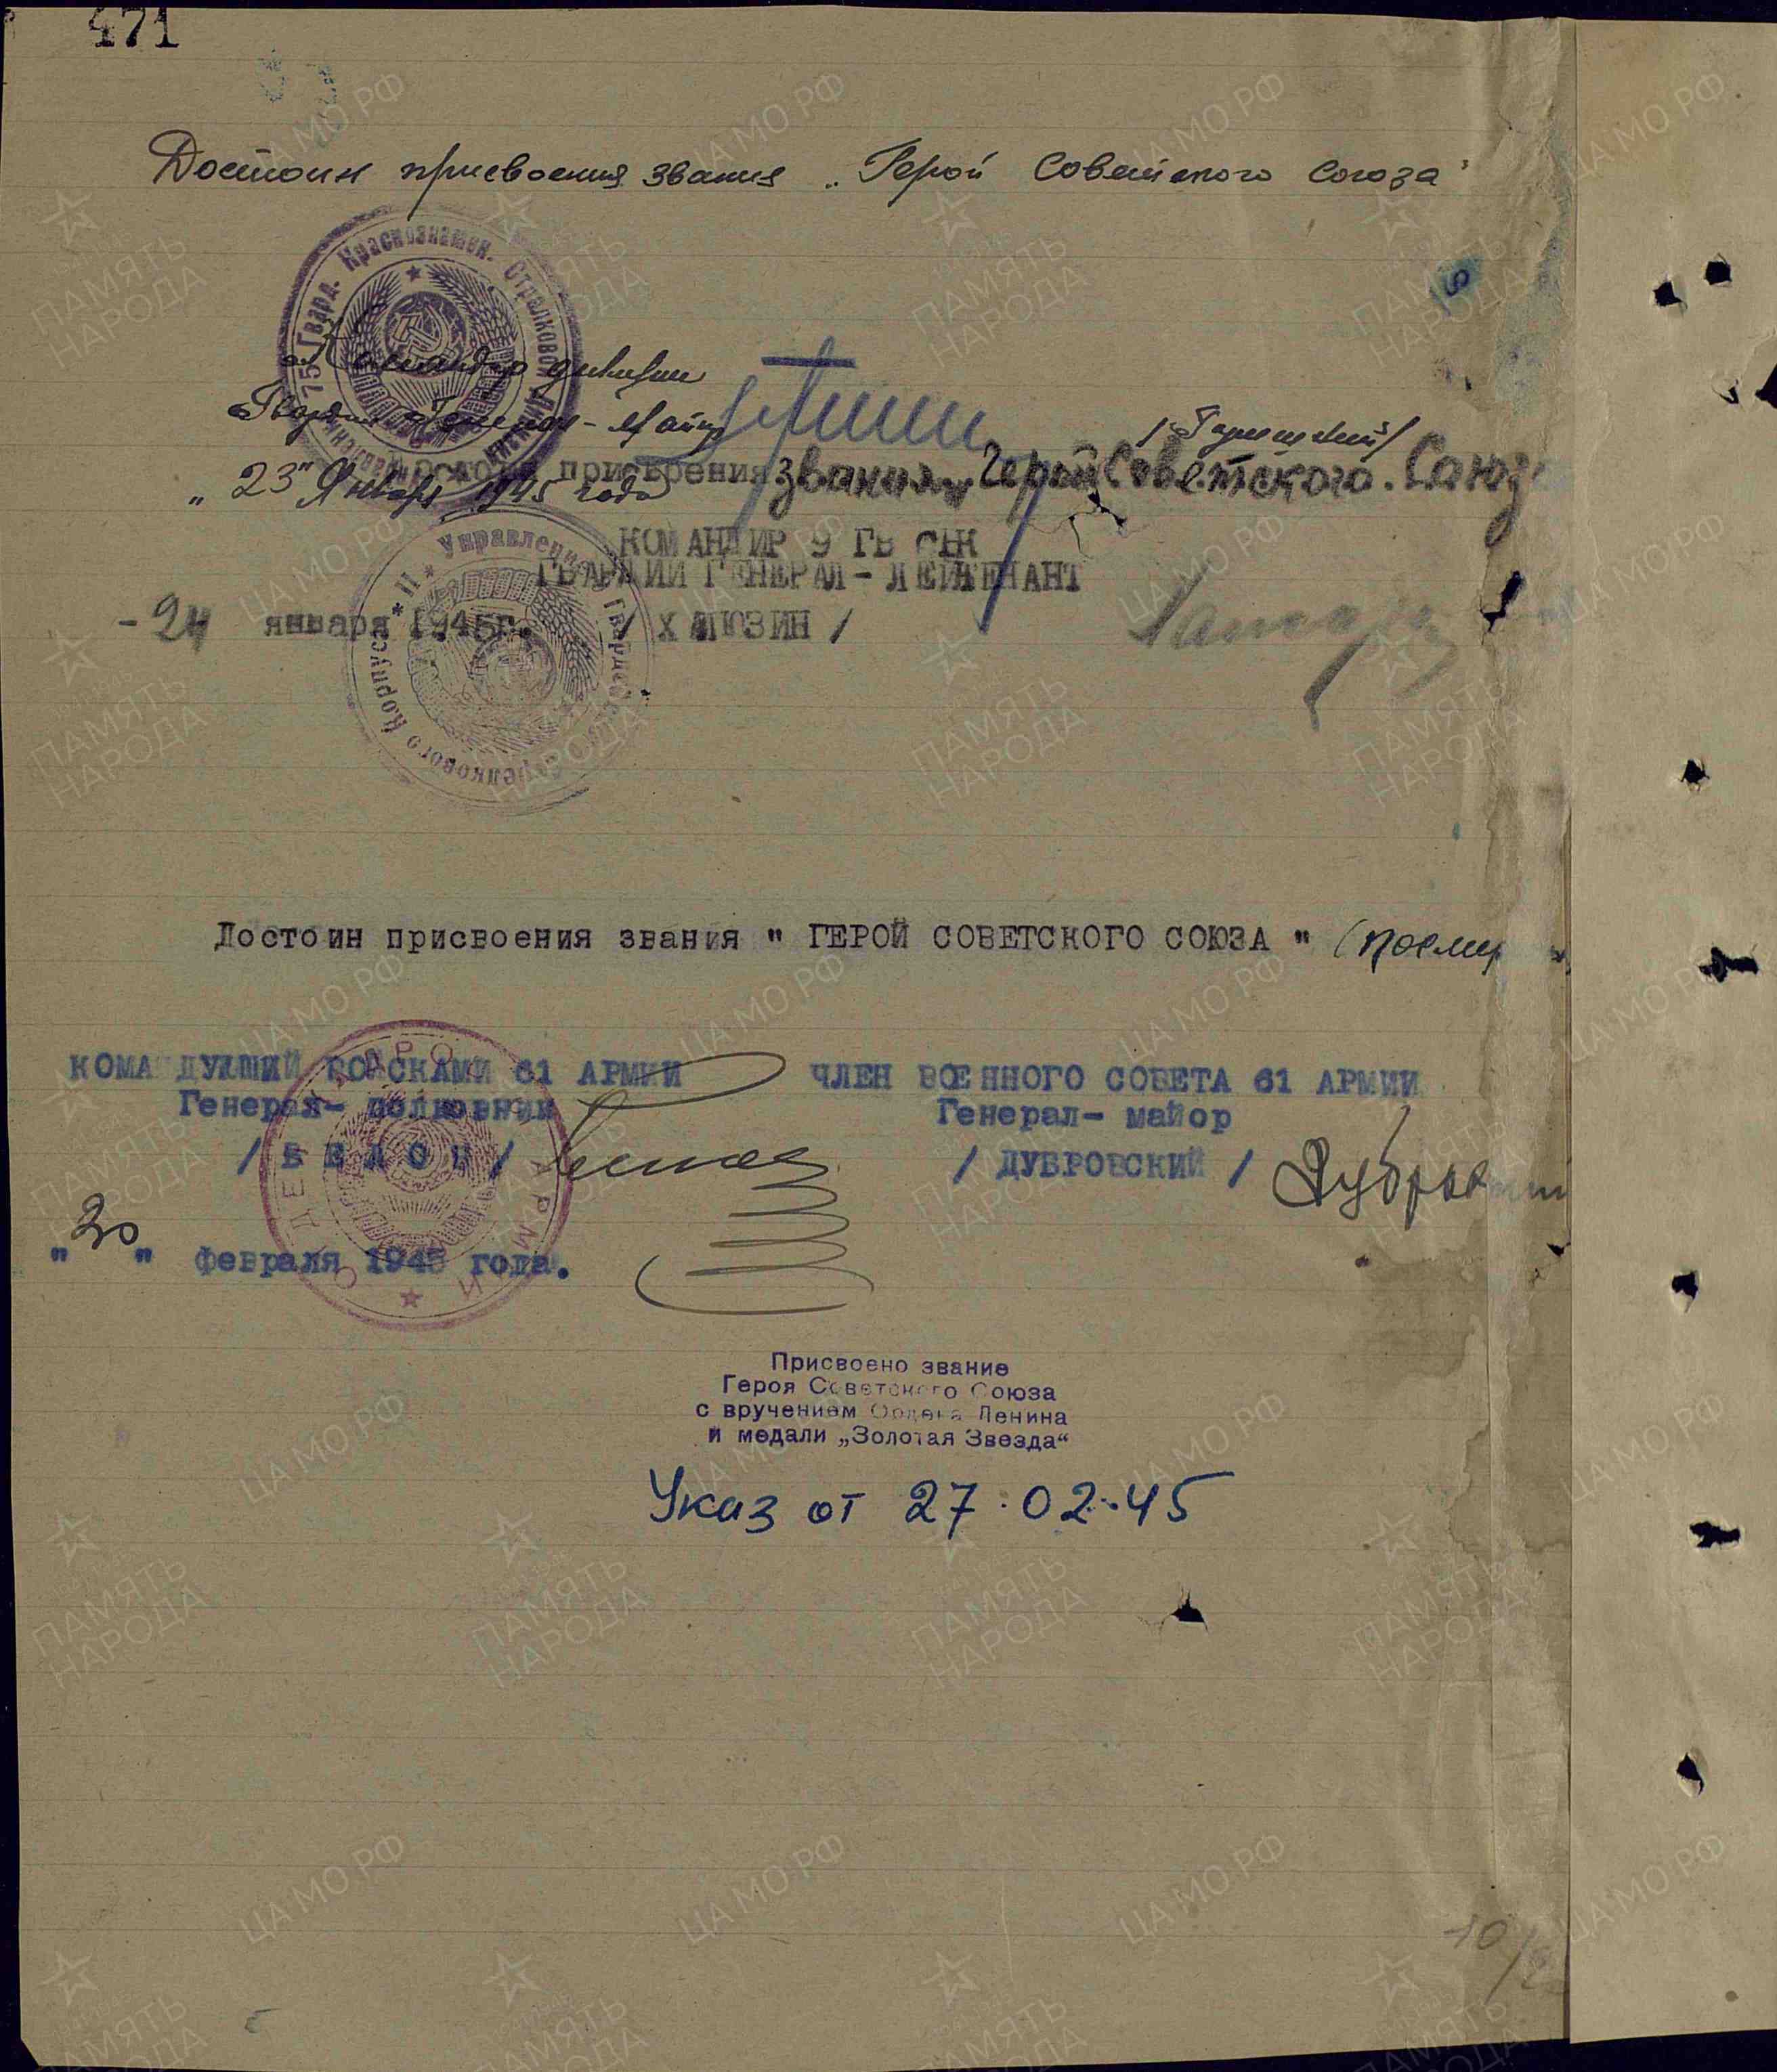 471
Достоин присвоения звания „Герой Советского Союза"
75 Гвард. Краснознамен. Стрелковой Дивизии
Командир дивизии
Гвардии Генерал-Майор
/Горишний/
„23" Января 1945 года
Достоин присвоения звания „Герой Советского Союза
КОМАНДИР 9 ГВ СТК
ГВАРДИИ ГЕНЕРАЛ-ЛЕЙТЕНАНТ
-24 января 1945г. / ХАЛЮЗИН /
Управление Гвардейск Стрелкового Корпуса
Достоин присвоения звания " ГЕРОЙ СОВЕТСКОГО СОЮЗА " (посмер
КОМАНДУЮЩИЙ ВОЙСКАМИ 61 АРМИИ
Генерал-полковник
/ БЕЛОВ /
ЧЛЕН ВОЕННОГО СОВЕТА 61 АРМИИ
Генерал-майор
/ ДУБРОВСКИЙ /
" 20 " февраля 1945 года.
Присвоено звание
Героя Советского Союза
с вручением Ордена Ленина
и медали „Золотая Звезда“
Указ от 27.02.45
10/2
ЦА МО РФ
ПАМЯТЬ
НАРОДА